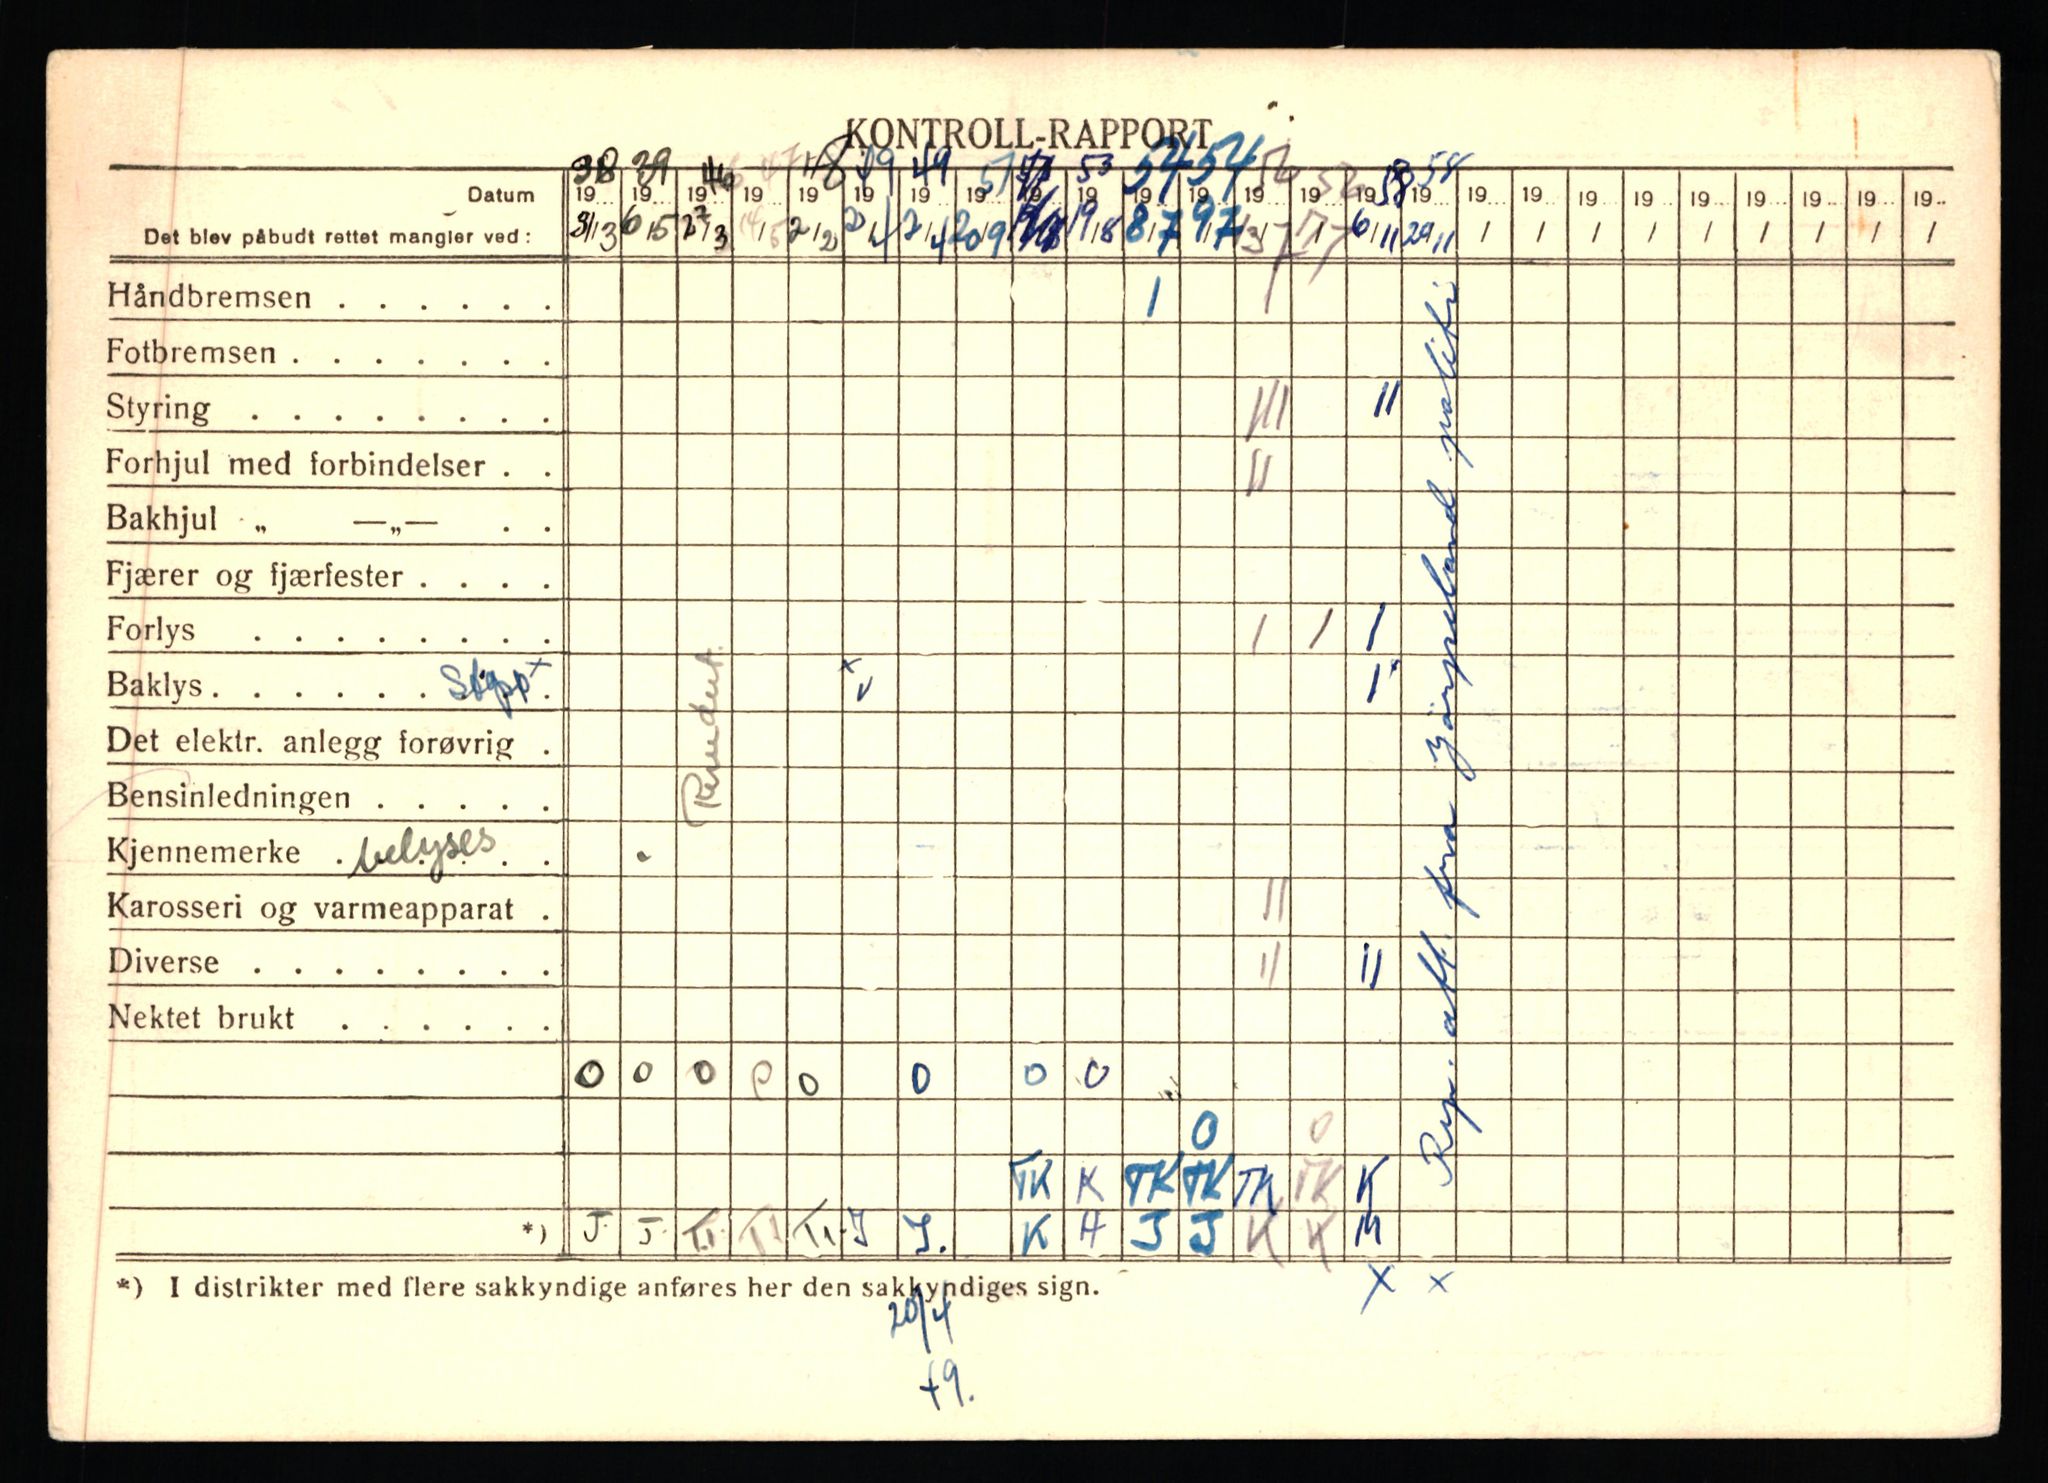 KONTROLL-RAPPORT
38 39 46 47 48 49 49 51 53 54 54 56 58 58
Datum 19 19 19 19 19 19 19 19 19 19 19 19 19 19 19 19 19 19 19 19 19 19 19 19 19
Det blev påbudt rettet mangler ved: 31/3 6/5 27/3 14/5 2/2 2/4 2/4 20/9 19/8 8/7 9/7 13/7 17/7 6/11 29/11 / / / / / / / / /
Håndbremsen . . . . . . I I
Fotbremsen . . . . . . .
Styring . . . . . . . . III II
Forhjul med forbindelser . . II
Bakhjul „ —„— . .
Fjærer og fjærfester . . . .
Forlys . . . . . . . . I I I
Baklys . . . . . . Stopp x . x v I x
Det elektr. anlegg forøvrig .
Bensinledningen . . . . .
Kjennemerke . belyses . . .
Karosseri og varmeapparat . II
Diverse . . . . . . . . II II
Nektet brukt . . . . . .
Rep. att. fra Jørpeland politi
O O O O O O O O
O O
TK K TK TK TK TK K
*) J. J. T.I. T.I. T.I. J J. K H J J K K M
*) I distrikter med flere sakkyndige anføres her den sakkyndiges sign.
x x
20/4
49.